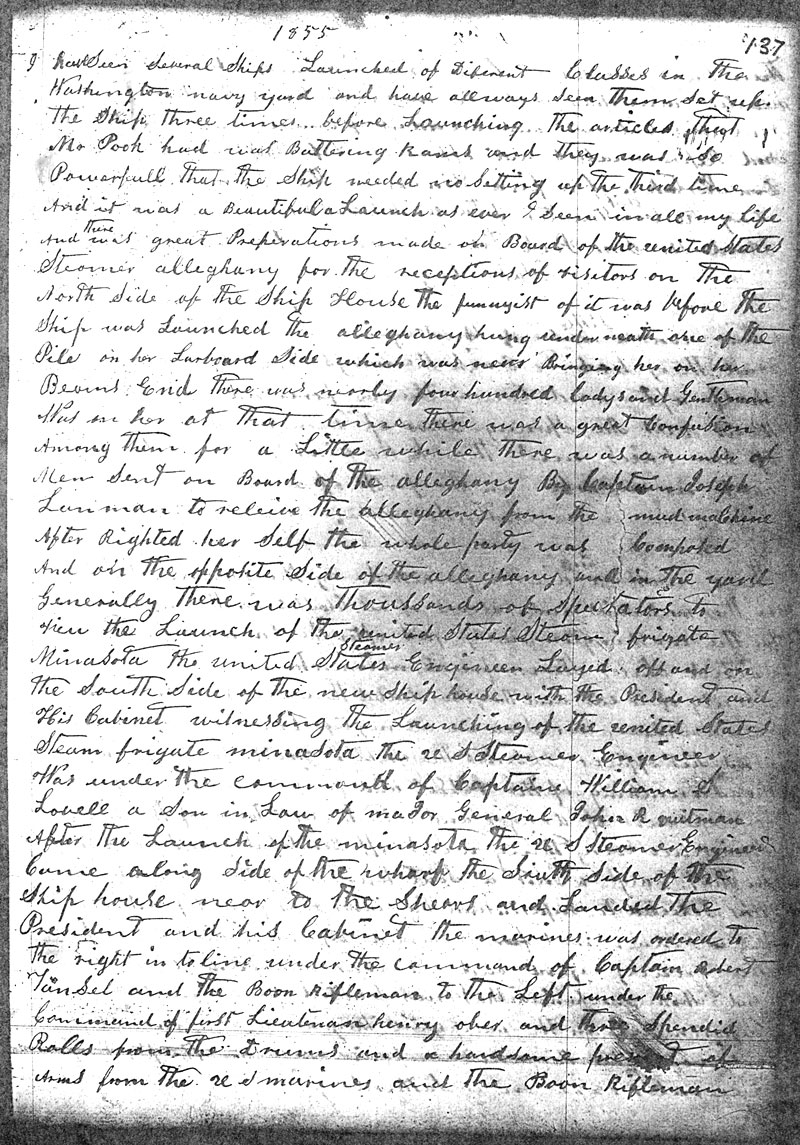 1855
137
I have Seen Several Ships Launched of Diferent Classes in The
Washington navy yard and have allways Seen Them Set up
the Ship three times before Launching The articles That
Mr Pook had was Battering Rams and they was So
Powerfull That the Ship needed no Setting up The third time
And it was a Beautifull a Launch as ever I Seen in all my life
And there was great Preperations made on Board of the united States
Steamer alleghany for the receptions of visitors on The
North Side of the Ship House the funnyist of it was before The
Ship was Launched the alleghany hung underneath one of the
Pile on her Larboard Side which was near Bringing her on her
Beams End there was nearly four hundred ladys and Gentleman
Was on her at that time There was a great Confusion
Among them for a Little while there was a number of
Men Sent on Board of the alleghany By Captain Joseph
Lanman to releive the alleghany from the mud machine
After Righted her Self the whole party was Composed
And on the opposite Side of the alleghany and in The yard
Generally there was Thoussands of Spectators to
view the Launch of the united States Steam frigate
Minasota the united States Steamer Engineer Layed off and on
the South Side of the new Ship house with the President and
His Cabinet witnessing the Launching of the united States
Steam frigate minasota the u S Steamer Engineer
Was under the command of Captain William S
Lovell a Son in Law of major General John A quitman
After the Launch of the minasota the u S Steamer Engineer
Came along Side of the wharf the South Side of the
Ship house near to the Shears and Landed The
President and his Cabinet the marines was ordered to
the right in to line under the command of Captain Robert
Tansel and the Boon Rifleman to the Left under the
Command of first Lieutenan henry ober and three Spendid
Rolls from the Drums and a handsome present of
Arms from the u S marines and the Boon Rifleman